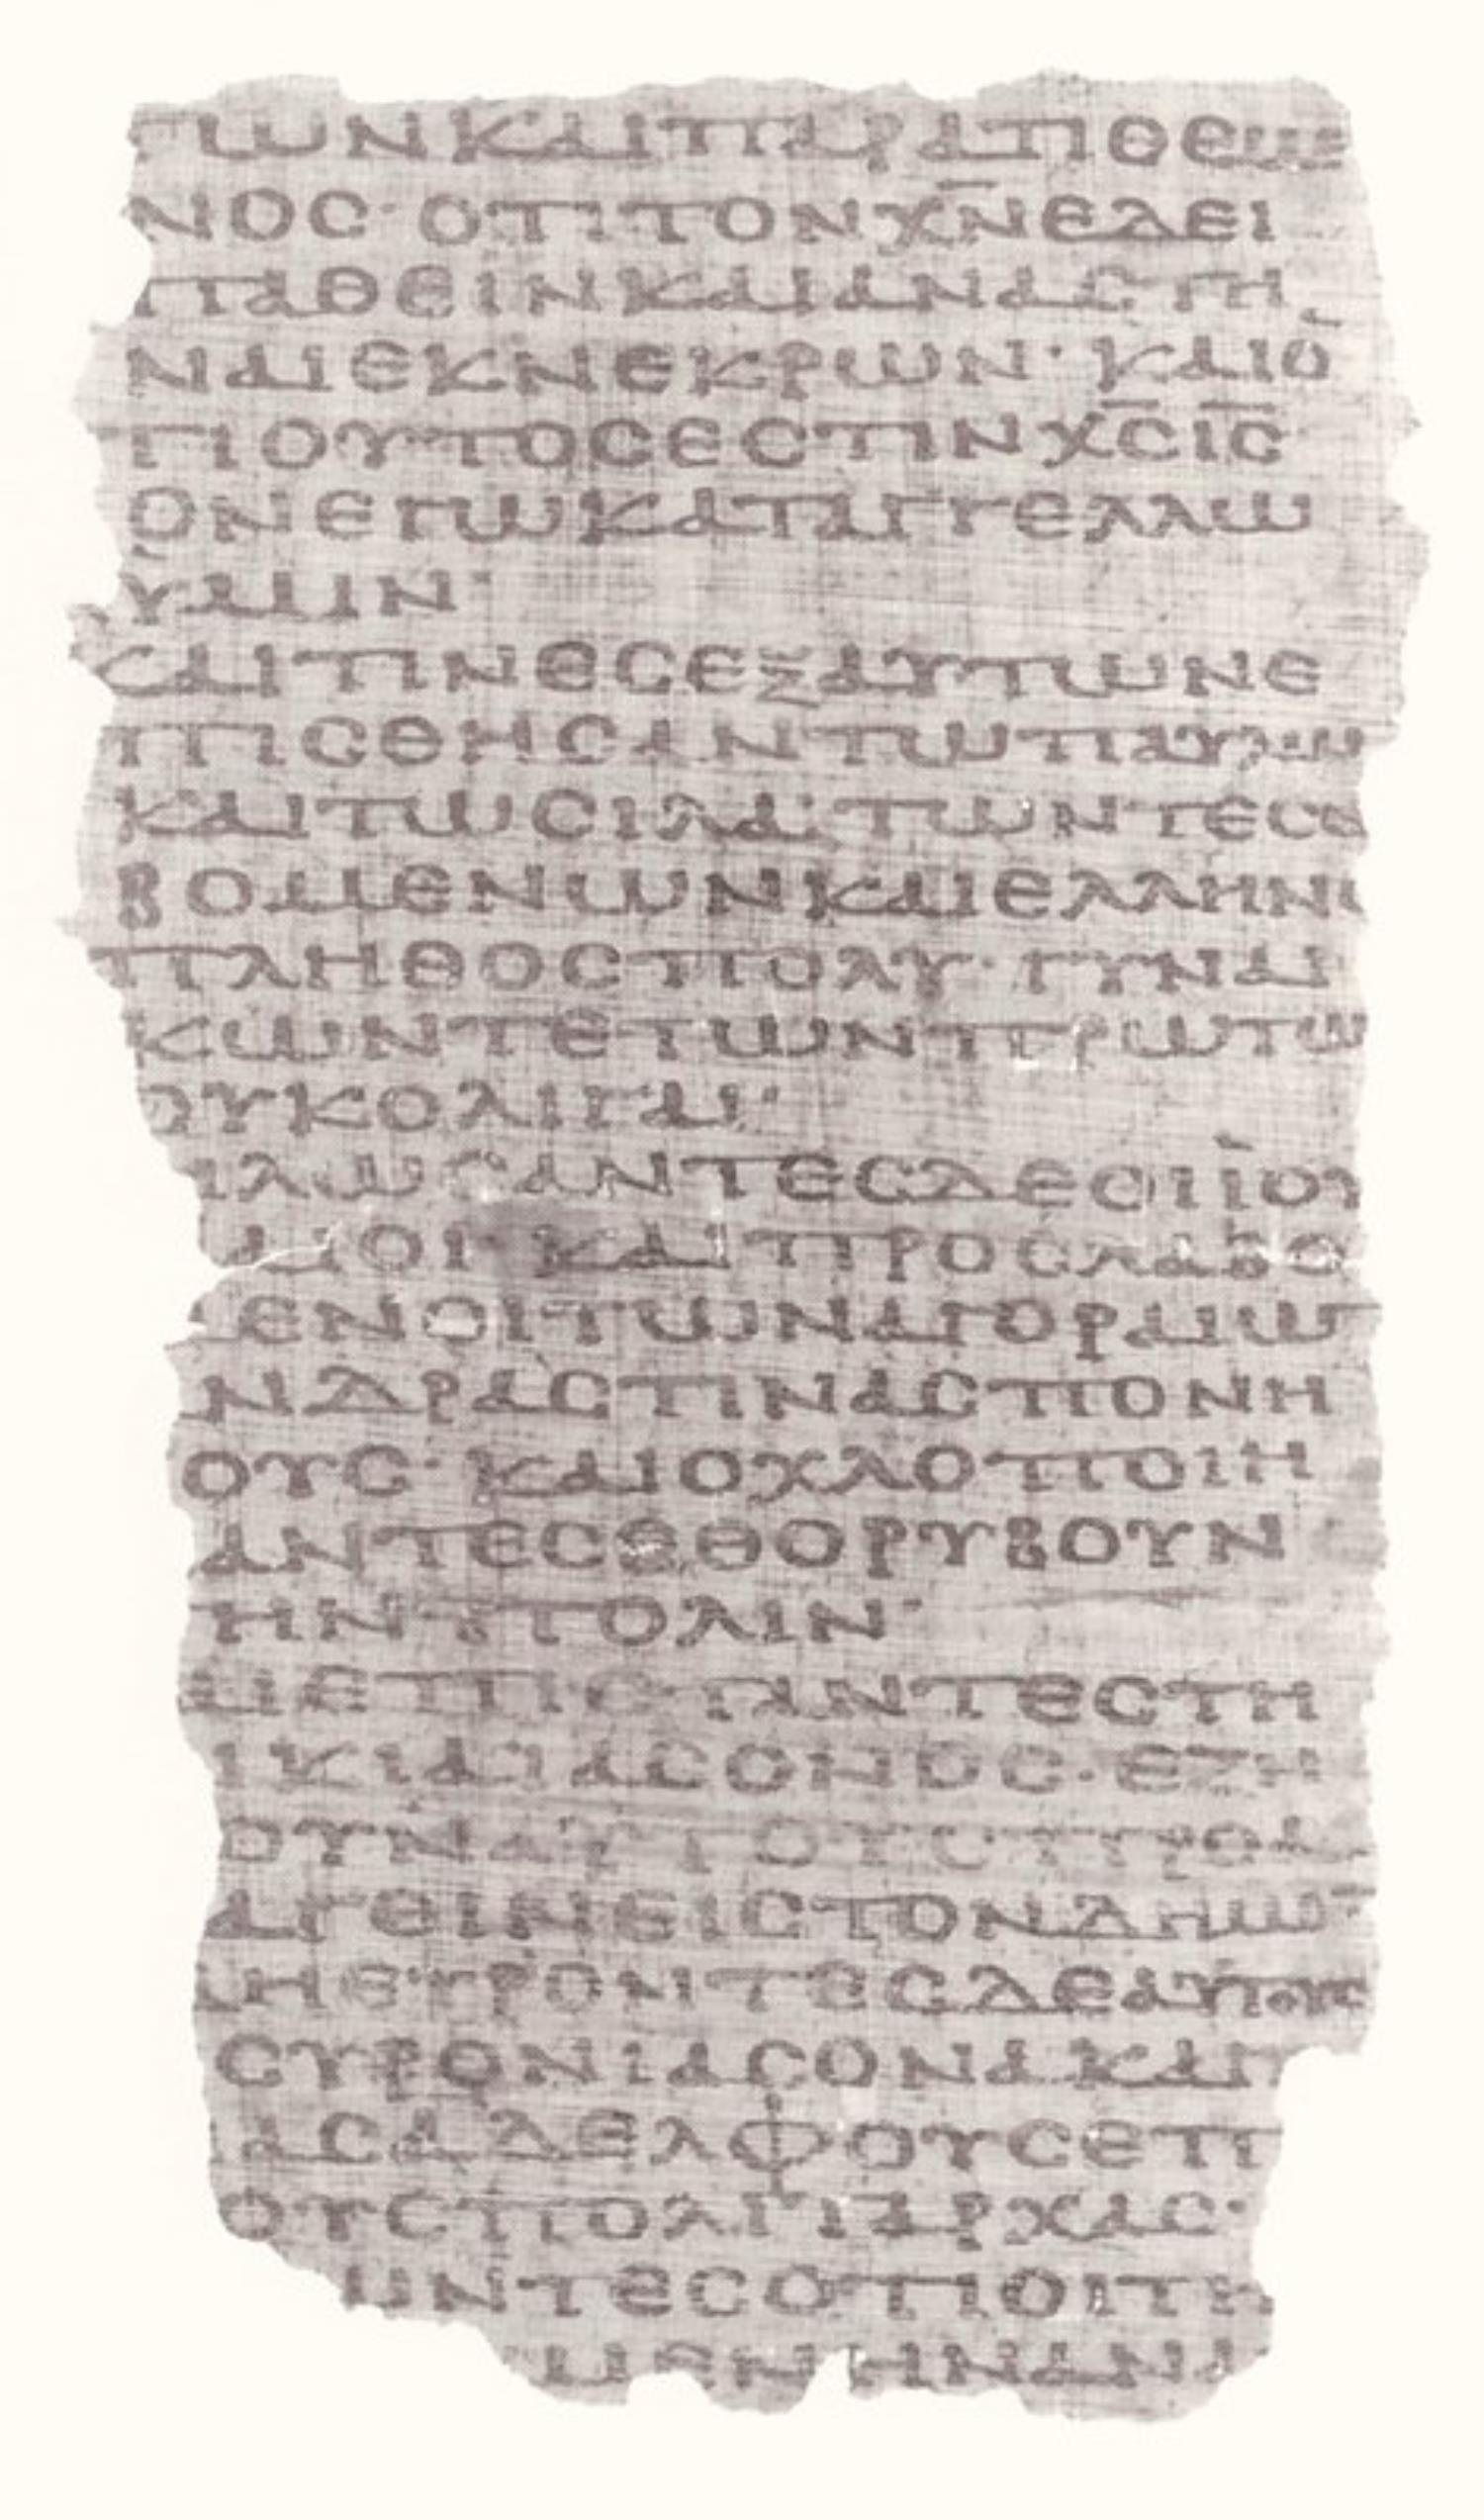 ΓΩΝΚΑΙΠΑΡΑΤΙΘΕΜΕ
ΝΟϹ· ΟΤΙΤΟΝΧ̅Ν̅ΕΔΕΙ
ΠΑΘΕΙΝΚΑΙΑΝΑϹΤΗ
ΝΑΙΕΚΝΕΚΡΩΝ· ΚΑΙΟ
ΤΙΟΥΤΟϹΕϹΤΙΝΧ̅Ϲ̅Ι̅Ϲ̅
ΟΝΕΓΩΚΑΤΑΓΓΕΛΛΩ
ΥΜΙΝ·
ΚΑΙΤΙΝΕϹΕΞΑΥΤΩΝΕ
ΠΙϹΘΗϹΑΝΤΩΠΑΥΛΩ
ΚΑΙΤΩϹΙΛΑ· ΤΩΝΤΕϹΕ
ΒΟΜΕΝΩΝΚΑΙΕΛΛΗΝΩ
ΠΛΗΘΟϹΠΟΛΥ· ΓΥΝΑΙ
ΚΩΝΤΕΤΩΝΠΡΩΤΩ
ΟΥΚΟΛΙΓΑΙ·
ΙΛΩϹΑΝΤΕϹΔΕΟΙΪΟΥ
ΑΙΟΙ ΚΑΙΠΡΟϹΛΑΒΟ
ΕΝΟΙΤΩΝΑΓΟΡΑΙΩ̅
ΝΔΡΑϹΤΙΝΑϹΠΟΝΗ
ΟΥϹ· ΚΑΙΟΧΛΟΠΟΙΗ
ΑΝΤΕϹΕΘΟΡΥΒΟΥΝ
ΗΝΠΟΛΙΝ·
ΑΙΕΠΙϹΤΑΝΤΕϹΤΗ
ΙΚΙΑΙΑϹΟΝΟϹ· ΕΖΗ
ΟΥΝΑΥΤΟΥϹΠΡΟΑ
ΑΓΕΙΝΕΙϹΤΟΝΔΗΜΟ̅
ΜΗΕΥΡΟΝΤΕϹΔΕΑΥΤΟΥϹ
ϹΥΡΟΝΙΑϹΟΝΑΚΑΙΤ
ΙΑϹΑΔΕΛΦΟΥϹΕΠΙ
ΟΥϹΠΟΛΙΤΑΡΧΑϹ·
ΩΝΤΕϹΟΤΙΟΙΤΗ
ΜΕΝΗΝΑΝΑ